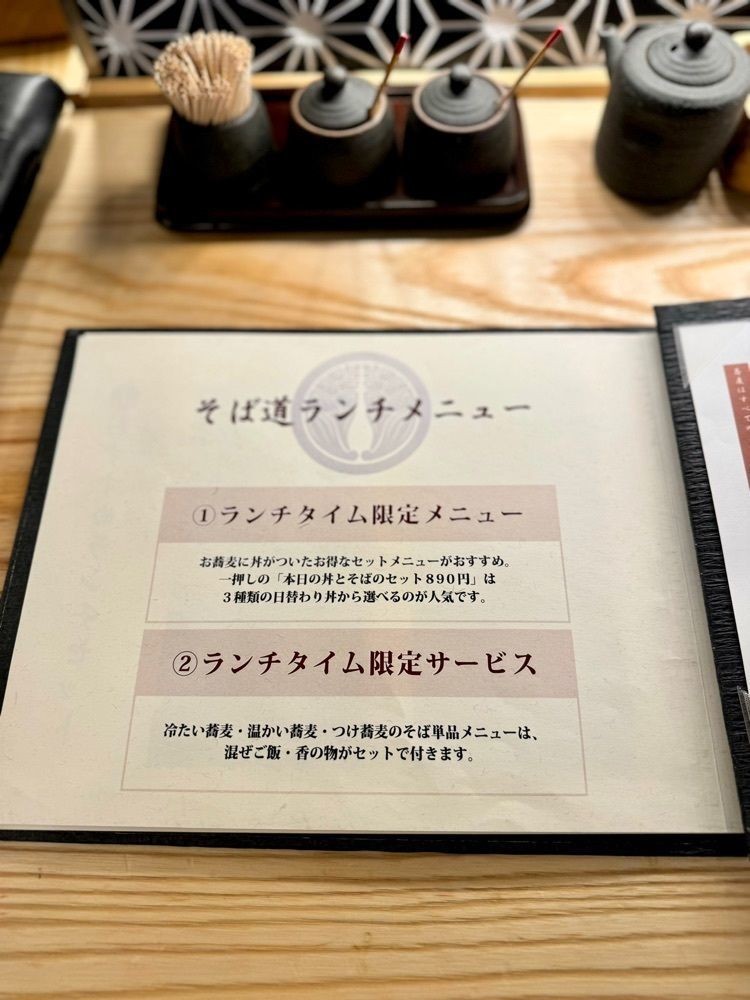 そば道ランチメニュー
①ランチタイム限定メニュー
お蕎麦に丼がついたお得なセットメニューがおすすめ。
一押しの「本日の丼とそばのセット８９０円」は
３種類の日替わり丼から選べるのが人気です。
②ランチタイム限定サービス
冷たい蕎麦・温かい蕎麦・つけ蕎麦のそば単品メニューは、
混ぜご飯・香の物がセットで付きます。